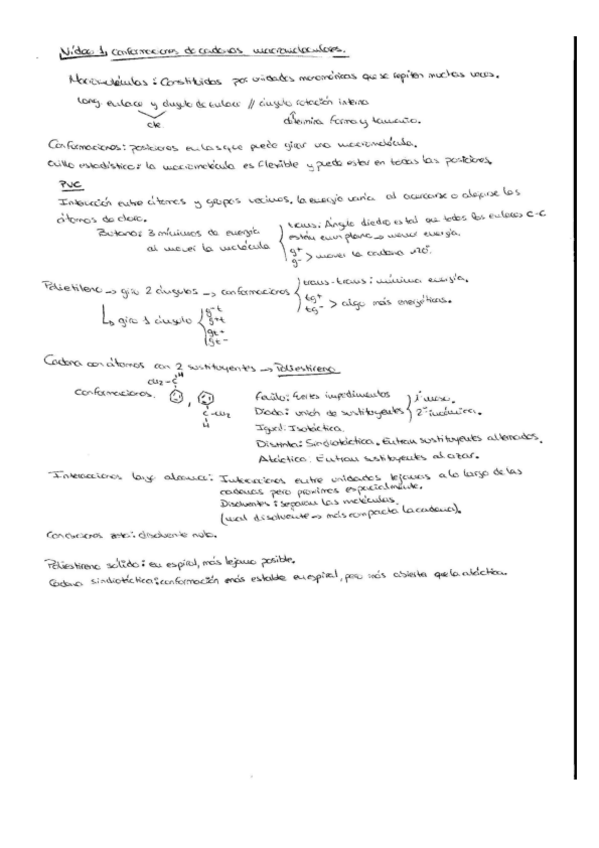 Vídeo 1, conformaciones de cadenas macromoleculares.
Macromoléculas: Constituidas por unidades monoméricas que se repiten muchas veces.
long enlace y ángulo de enlace // ángulo rotación interna
cte
determina forma y tamaño.
Conformaciones: posiciones en las que puede girar una macromolécula.
Ovillo estadístico: la macromolécula es flexible y puede estar en todas las posiciones.
PVC
Interacción entre átomos y grupos vecinos, la energía varía al acercarse o alejarse los
átomos de cloro.
Butano: 3 mínimos de energía
al mover la molécula
trans: Ángulo diedro es tal que todos los enlaces C-C
están en un plano → menor energía.
g+
g- > mover la cadena 120°.
Polietileno → giro 2 ángulos → conformaciones
trans-trans: mínima energía.
tg+
tg- > algo más energéticas.
giro 1 ángulo
g-t
g+t
gt+
gt-
Cadena con átomos con 2 sustituyentes → Poliestireno
conformaciones.
CH2-C
H
,
C-CH2
H
Fenilo: fuertes impedimentos
Diada: unión de sustituyentes
2ª
Igual: Isotáctica.
Distinta: Sindiotáctica. Entran sustituyentes alternados.
Atáctico: Entran sustituyentes al azar.
Interacciones largo alcance: Interacciones entre unidades lejanas a lo largo de las
cadenas pero próximas espacialmente.
Disolventes: separan las moléculas
(mal disolvente → más compacta la cadena).
Condiciones zeta: disolvente nulo.
Poliestireno sólido: en espiral, más lejano posible.
Cadena sindiotáctica: conformación más estable en espiral, pero más abierta que la atáctica.